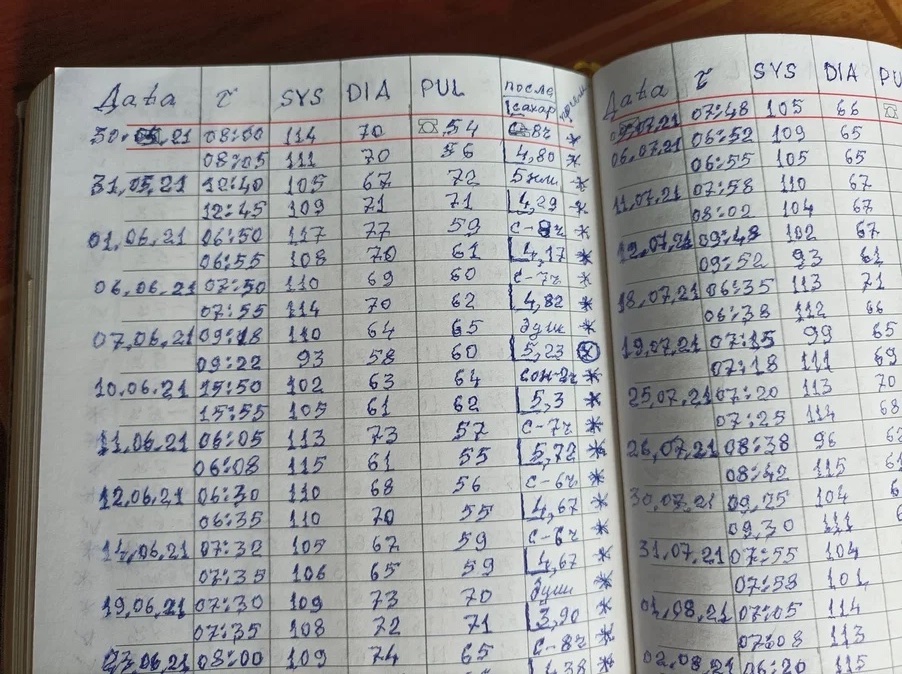 Дата τ SYS DIA PUL после сахар
30. .21 08:00 114 70 ☎ 54 с-8ч *
08:05 111 70 56 4,80 *
31.05.21 12:40 105 67 72 *
12:45 109 71 71 4,29 *
01.06.21 06:50 117 77 59 с-8ч *
06:55 108 70 61 4,17 *
06.06.21 07:50 110 69 60 с-7ч *
07:55 114 70 62 4,82 *
07.06.21 09:18 110 64 65 душ *
09:22 93 58 60 5,23 *
10.06.21 15:50 102 63 64 сон-2ч *
15:55 105 61 62 5,3 *
11.06.21 06:05 113 73 57 с-7ч *
06:08 115 61 55 5,72 *
12.06.21 06:30 110 68 56 с-6ч *
06:35 110 70 55 4,67 *
14.06.21 07:32 105 67 59 с-6ч *
07:35 106 65 59 4,67 *
19.06.21 07:30 109 73 70 душ *
07:35 108 72 71 3,90 *
23.06.21 08:00 109 74 65 с-8ч *
4,38 *
Дата τ SYS DIA PU
.07.21 07:48 105 66 ☎
06.07.21 06:52 109 65
06:55 105 65
11.07.21 07:58 110 67
08:02 104 67
12.07.21 09:48 102 67
09:52 93 61
18.07.21 06:35 113 71
06:38 112 66
19.07.21 07:15 99 65
07:18 111 69
25.07.21 07:20 113 70
07:25 114 68
26.07.21 08:38 96
08:42 115
30.07.21 09.25 104
09.30 111
31.07.21 07:55 104
07:58 101
01.08.21 07:05 114
07:08 113
02.08.21 06:20 115